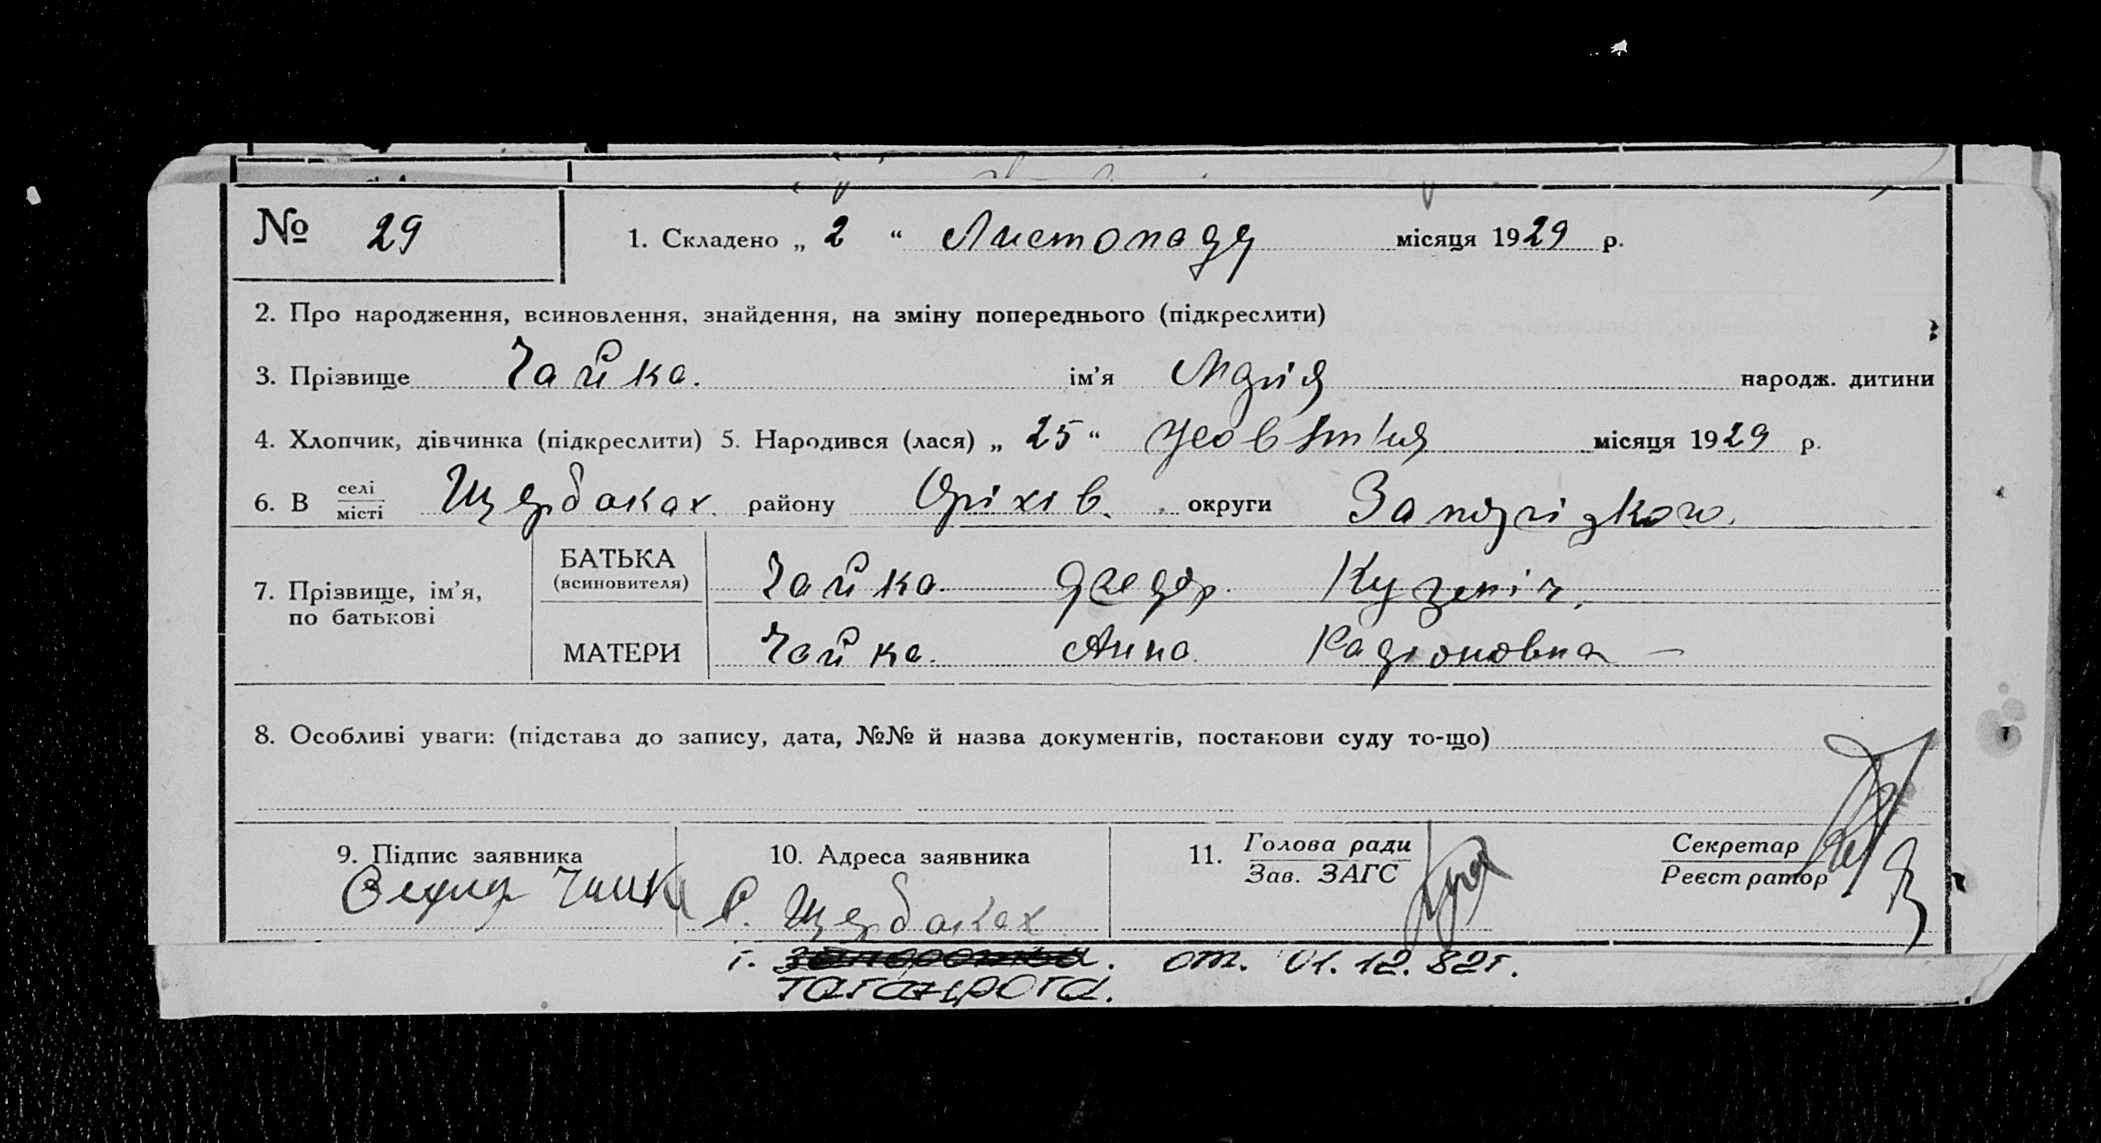 № 29
1. Складено „ 2 “ Листопаду місяця 1929 р.
2. Про народження, всиновлення, знайдення, на зміну попереднього (підкреслити)
3. Прізвище Чайка. ім’я Марія народж. дитини
4. Хлопчик, дівчинка (підкреслити) 5. Народився (лася) „ 25 “ місяця 1929 р.
6. В селі місті Щербаках району Оріхів. округи
7. Прізвище, ім’я, по батькові
БАТЬКА (всиновителя) Чайка Кузмич.
МАТЕРИ Чайка. Анна Радіоновна —
8. Особливі уваги: (підстава до запису, дата, №№ й назва документів, постанови суду то-що)
9. Підпис заявника
10. Адреса заявника
11. Голова ради Зав. ЗАГС
Секретар Реєстратор
Чайка С. Щербаках
г. от. 01.12.82г.
Таганрога.